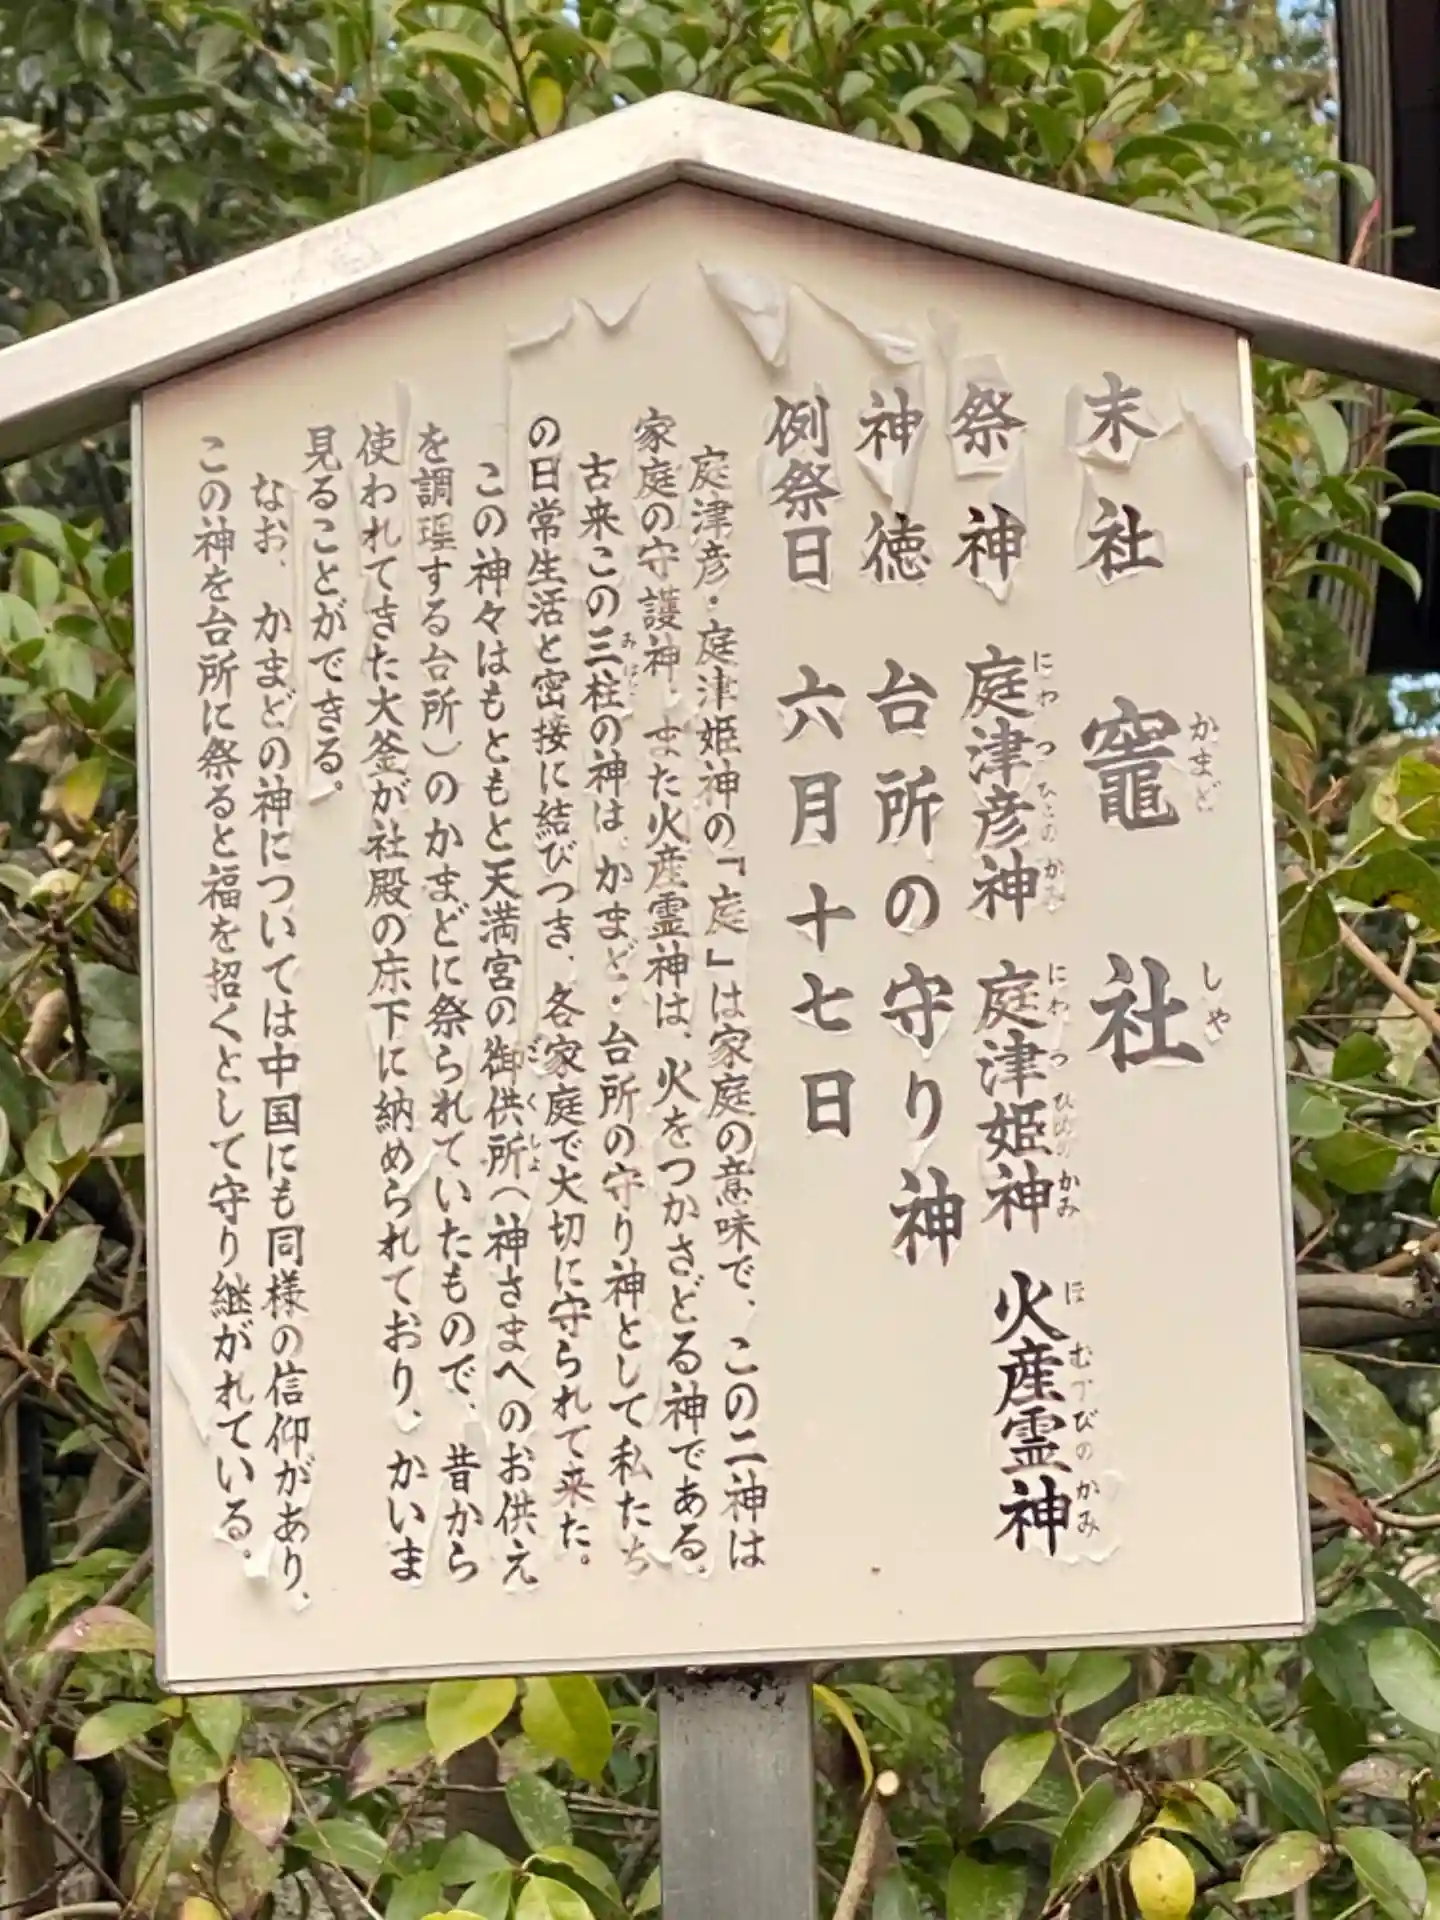 末社 竈社
かまど しや
祭神 庭津彦神 庭津姫神 火産霊神
にわつひこのかみ にわつひめのかみ ほむすびのかみ
神徳 台所の守り神
例祭日 六月十七日
庭津彦・庭津姫神の「庭」は家庭の意味で、この二神は
家庭の守護神、また火産霊神は、火をつかさどる神である。
古来この三柱の神は、かまど・台所の守り神として私たち
の日常生活と密接に結びつき、各家庭で大切に守られて来た。
この神々はもともと天満宮の御供所（神さまへのお供え
ごくしょ
を調理する台所）のかまどに祭られていたもので、昔から
使われてきた大釜が社殿の床下に納められており、かいま
見ることができる。
なお、かまどの神については中国にも同様の信仰があり、
この神を台所に祭ると福を招くとして守り継がれている。